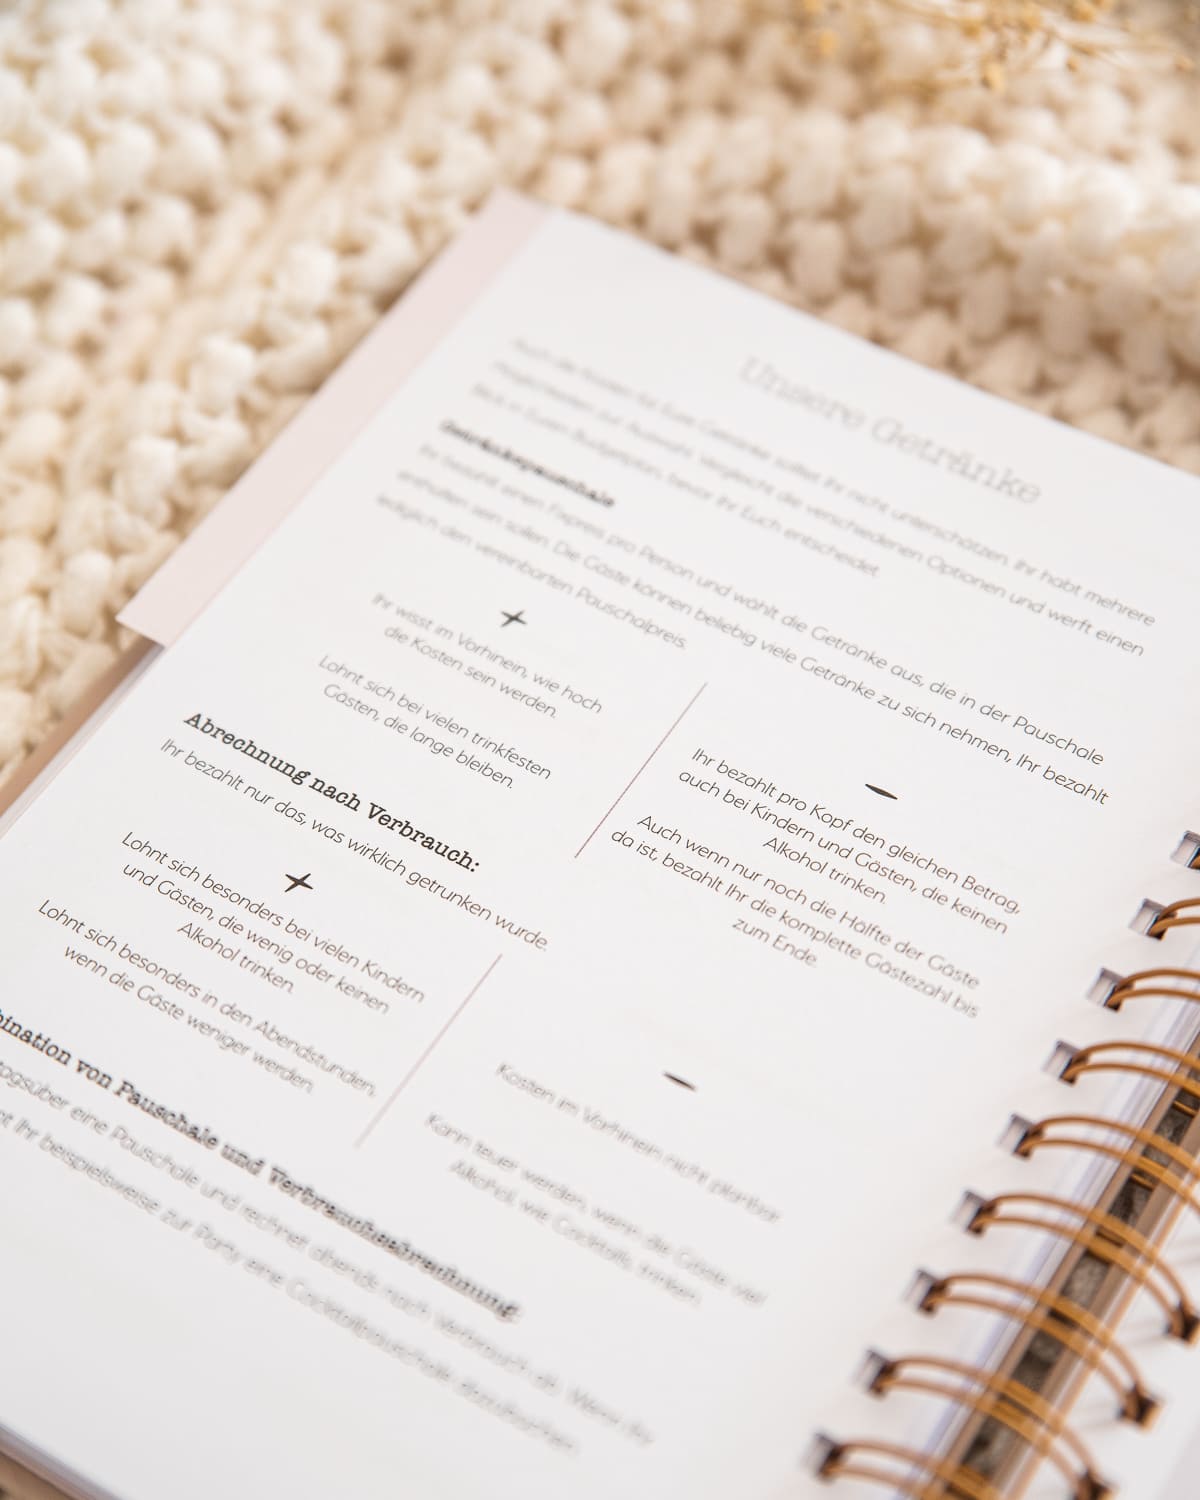 Unsere Getränke
Auch die Kosten für Eure Getränke solltet Ihr nicht unterschätzen. Ihr habt mehrere
Möglichkeiten zur Auswahl. Vergleicht die verschiedenen Optionen und werft einen
Blick in Euren Budgetplan, bevor Ihr Euch entscheidet.
Getränkepauschale
Ihr bezahlt einen Fixpreis pro Person und wählt die Getränke aus, die in der Pauschale
enthalten sein sollen. Die Gäste können beliebig viele Getränke zu sich nehmen, Ihr bezahlt
lediglich den vereinbarten Pauschalpreis.
+
Ihr wisst im Vorhinein, wie hoch
die Kosten sein werden.
Lohnt sich bei vielen trinkfesten
Gästen, die lange bleiben.
-
Ihr bezahlt pro Kopf den gleichen Betrag,
auch bei Kindern und Gästen, die keinen
Alkohol trinken.
Auch wenn nur noch die Hälfte der Gäste
da ist, bezahlt Ihr die komplette Gästezahl bis
zum Ende.
Abrechnung nach Verbrauch:
Ihr bezahlt nur das, was wirklich getrunken wurde.
+
Lohnt sich besonders bei vielen Kindern
und Gästen, die wenig oder keinen
Alkohol trinken.
Lohnt sich besonders in den Abendstunden,
wenn die Gäste weniger werden.
-
Kosten im Vorhinein nicht planbar
Kann teuer werden, wenn die Gäste viel
Alkohol, wie Cocktails, trinken.
bination von Pauschale und Verbrauchsabrechnung:
tagsüber eine Pauschale und rechnet abends nach Verbrauch ab. Wenn Ihr
Ihr beispielsweise zur Party eine Cocktailpauschale dazubuchen.